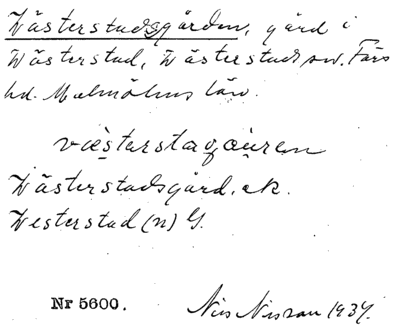 Wästerstadsgården, gård i
Wästerstad, Wästerstads sn. Färs
hd. Malmöhus län.
Wästerstadsgård. ek.
Westerstad (n) G.
Nr 5600.
Nils Nilsson 1934.